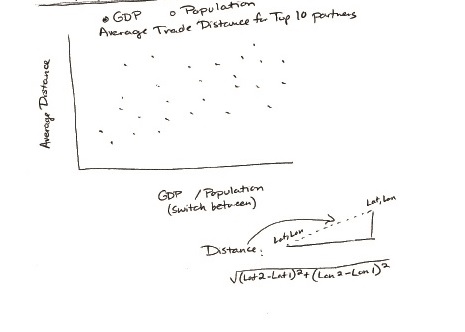 GDP Population
Average Trade Distance for Top 10 partners
Average Distance
GDP / Population
(switch between)
Lat, Lon
Lat, Lon
Distance:
√(Lat2-Lat1)²+(Lon2-Lon1)²